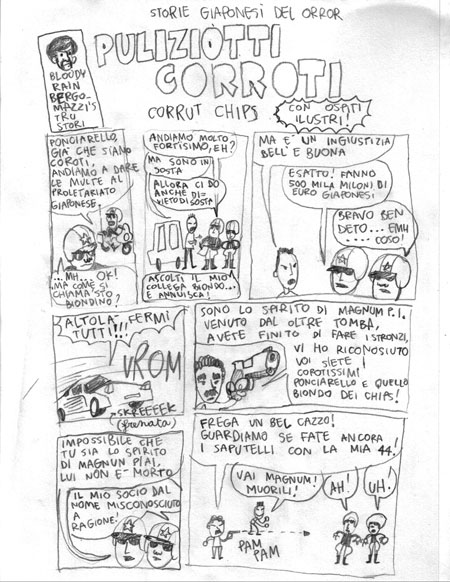 STORIE GIAPONESI DEL ORROR
PULIZIÒTTI
CORROTI
CORRUT CHIPS
CON OSPITI
ILUSTRI!
BLOODY
RAIN
BERGO-
MAZZI'S
TRU
STORI
PONCIARELLO,
GIÀ CHE SIAMO
COROTI,
ANDIAMO A DARE
LE MULTE AL
PROLETARIATO
GIAPONESE
...MH... OK!
MA COME SI
CHIAMA 'STO
BIONDINO?
ANDIAMO MOLTO
FORTISIMO, EH?
MA SONO IN
SOSTA
ALLORA CI DO
ANCHE DI-
VIETO DI SOSTA
ASCOLTI IL MIO
COLLEGA BIONDO...
E ANNUISCA!
MA E' UN INGIUSTIZIA
BELL' E BUONA
ESATTO! FANNO
500 MILA MILONI DI
EURO GIAPONESI
BRAVO BEN
DETO... EMH
.... COSO!
ALTOLA' FERMI
TUTTI!!!
VROM
SKREEEEK
(frenata)
SONO LO SPIRITO DI MAGNUM P.I.
VENUTO DAL OLTRE TOMBA,
AVETE FINITO DI FARE I STRONZI,
VI HO RICONOSIUTO
VOI SIETE I
COROTISSIMI
PONCIARELLO E QUELLO
BIONDO DEI CHIPS!
IMPOSSIBILE CHE
TU SIA LO SPIRITO
DI MAGNUN P.I.,
LUI NON E' MORTO
IL MIO SOCIO DAL
NOME MISCONOSCIUTO
A
RAGIONE!
FREGA UN BEL CAZZO!
GUARDIAMO SE FATE ANCORA
I SAPUTELLI CON LA MIA 44!
VAI MAGNUM!
MUORILI!
AH!
UH!
PAM
PAM